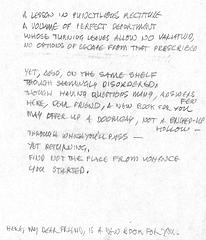 A LESSON IN PUNCTILIOUS RECTITUDE
A VOLUME OF PERFECT DEPORTMENT
WHOSE TURNING LEAVES ALLOW NO VARIATION,
NO OPTIONS OF ESCAPE FROM THAT PRESCRIBED
YET, ALSO, ON THE SAME SHELF
THOUGH SEEMINGLY DISORDERED,
THOUGH HAVING QUESTIONS MANY, ANSWERS FEW
HERE, DEAR FRIEND, A NEW BOOK FOR YOU
MAY OFFER UP A DOORWAY, NOT A HINGED-UP
HOLLOW —
THROUGH WHICH YOU'LL PASS —
YET RETURNING,
FIND NOT THE PLACE FROM WHENCE
YOU STARTED.
HERE, MY DEAR FRIEND, IS A NEW BOOK FOR YOU.